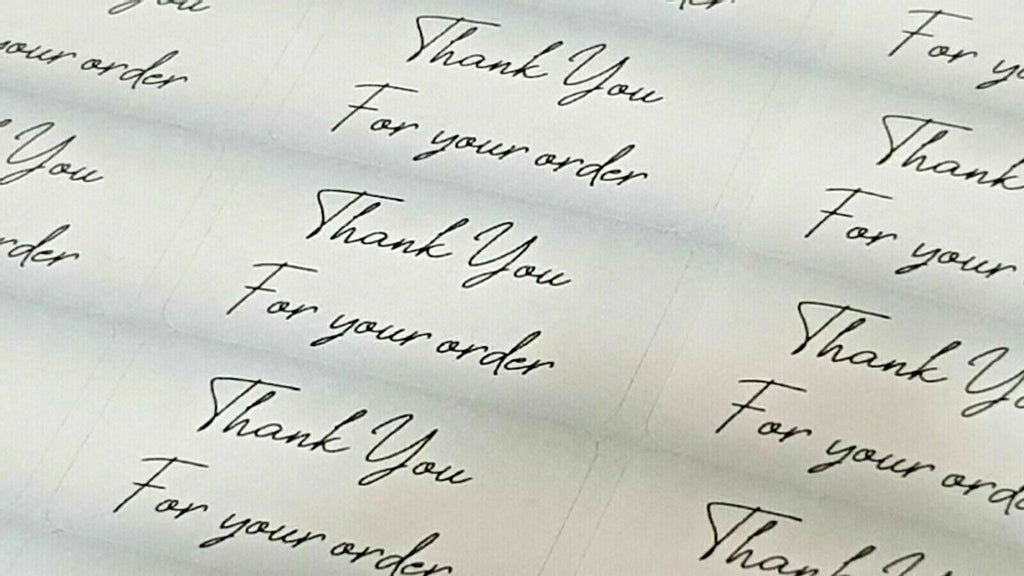 You
your order
You
order
Thank You
For your order
Thank You
For your order
Thank You
For your order
For
Thank
For your
Thank
For your
Thank